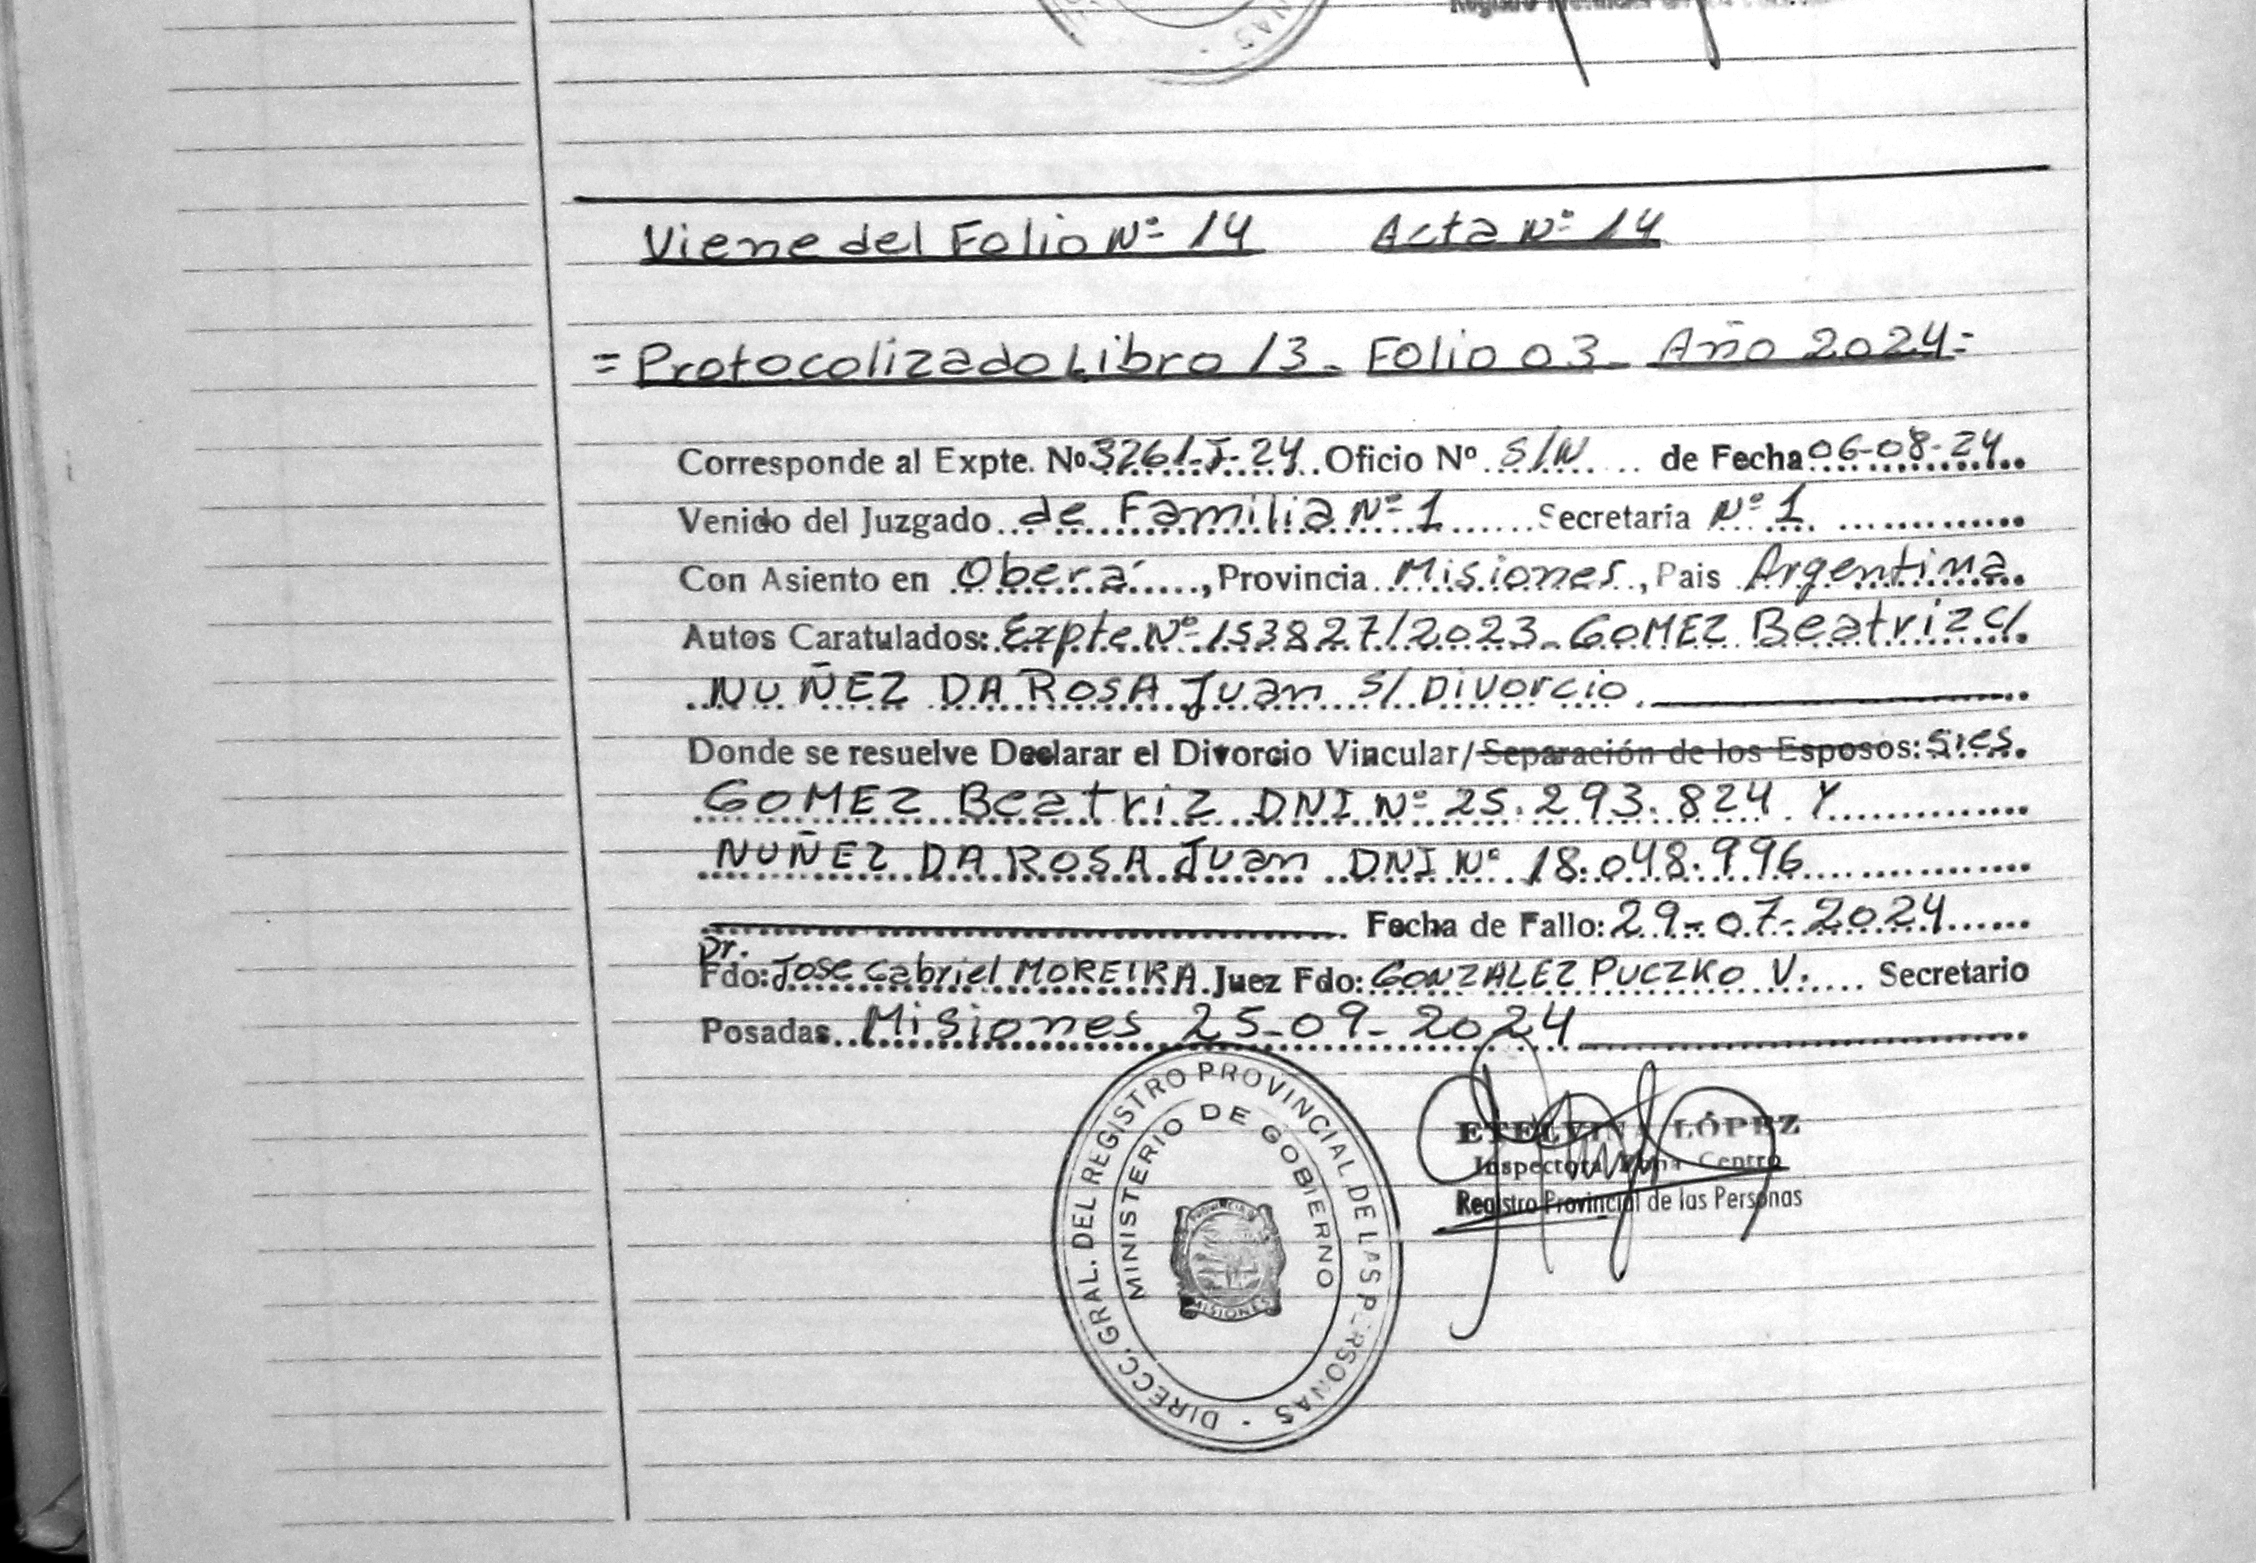 NAS -
Registro Provincial de las Personas
Viene del Folio Nº 14 Acta Nº 14
= Protocolizado Libro 13 - Folio 03 - Año 2024 =
Corresponde al Expte. Nº 3261-J-24 Oficio Nº S/N de Fecha 06-08-24
Venido del Juzgado de Familia Nº 1 Secretaria Nº 1
Con Asiento en Oberá, Provincia Misiones, Pais Argentina
Autos Caratulados: Expte Nº 153827/2023 - GOMEZ Beatriz c/
NUÑEZ DA ROSA Juan S/ Divorcio.
Donde se resuelve Declarar el Divorcio Vincular/Separación de los Esposos: sres.
GOMEZ Beatriz DNI Nº 25.293.824 Y
NUÑEZ DA ROSA Juan DNI Nº 18.048.996
Fecha de Fallo: 29-07-2024
Dr.
Fdo: Jose Gabriel MOREIRA. Juez Fdo: GONZALEZ PUCZKO V. Secretario
Posadas Misiones 25-09-2024
DIRECC. GRAL. DEL REGISTRO PROVINCIAL DE LAS PERSONAS -
MINISTERIO DE GOBIERNO
PROVINCIA DE
MISIONES
ETELVINA LÓPEZ
Inspectora Zona Centro
Registro Provincial de las Personas